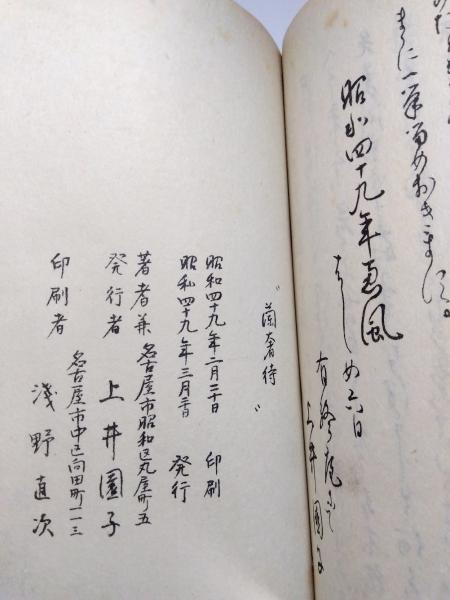 まに一筆留めおきます。
昭和四十九年恵風
はじめ六日
上井園子
“蘭奢待”
昭和四十九年二月二十日 印刷
昭和四十九年三月三日 発行
著者兼 名古屋市昭和区丸屋町五
発行者 上井園子
名古屋市中区向田町二ノ三
印刷者 浅野直次